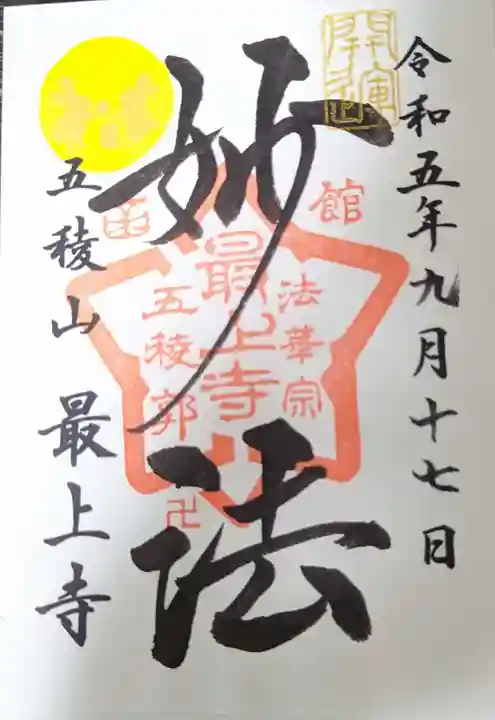 令和五年九月十七日
開運
妙法
函館
法華宗
最上寺
五稜郭
卍
五稜山 最上寺